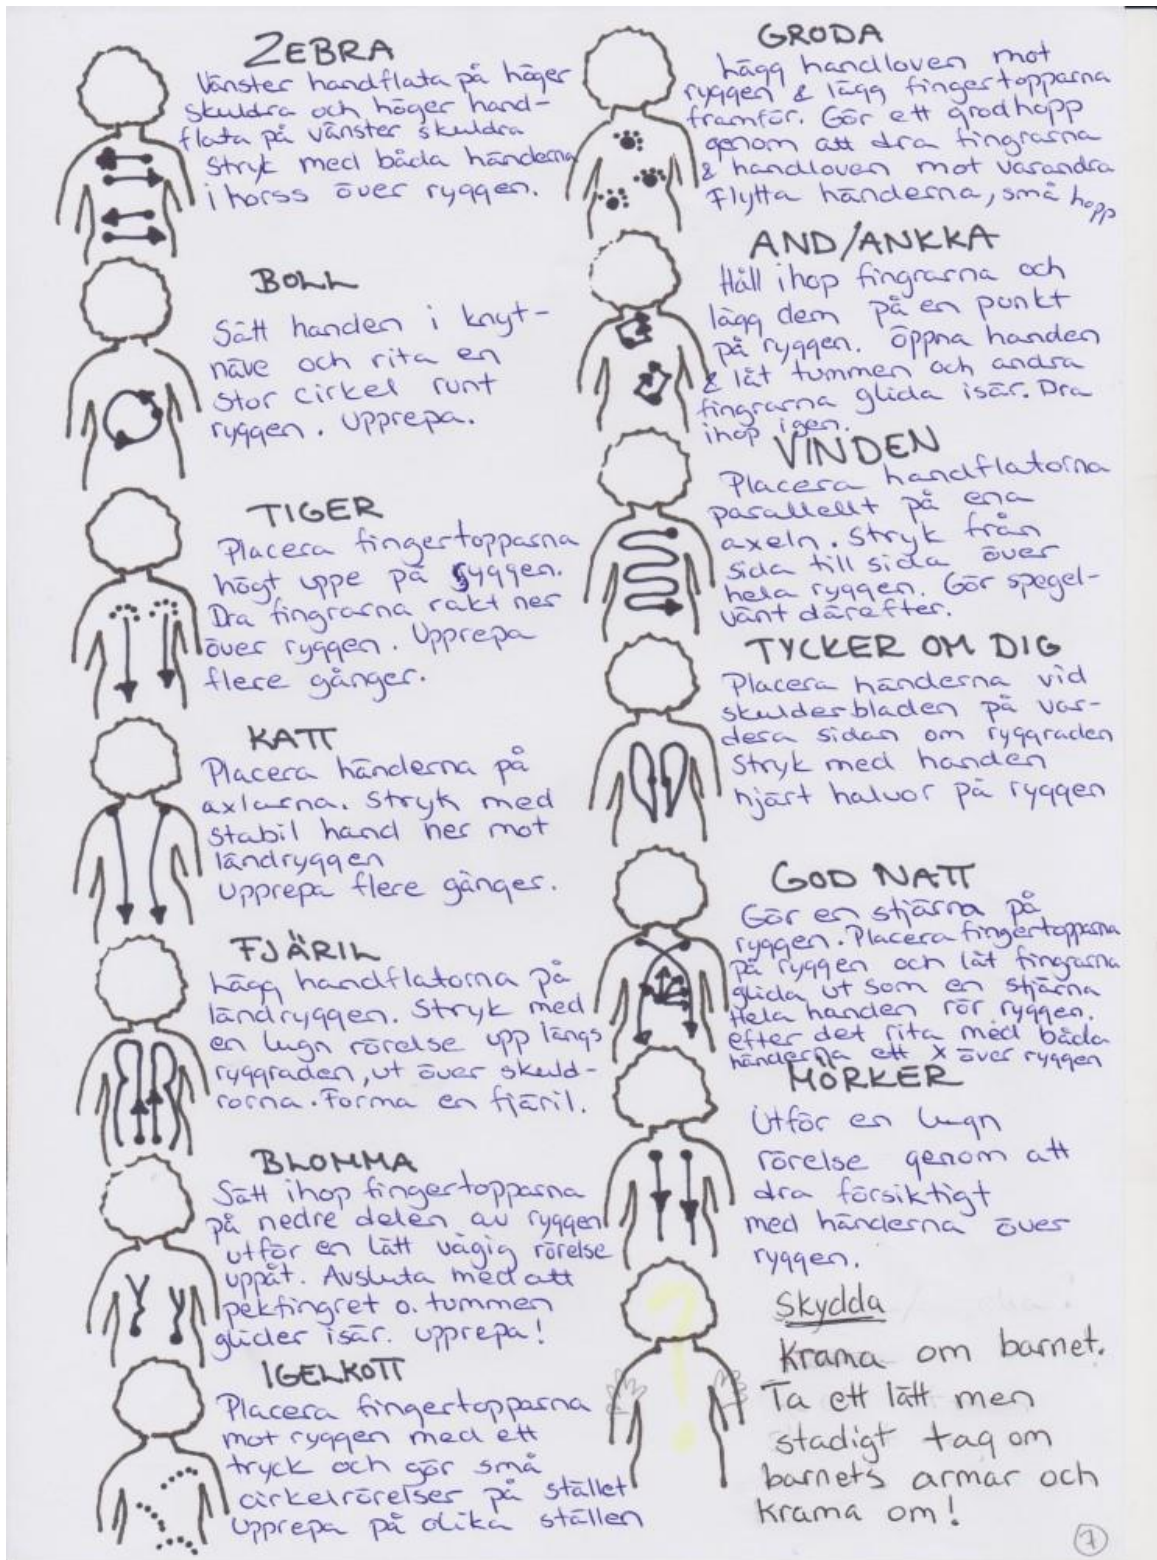 ZEBRA
Vänster handflata på höger
skuldra och höger hand-
flata på vänster skuldra
Stryk med båda händerna
i korss över ryggen.
BOLL
Sätt handen i knyt-
näve och rita en
stor cirkel runt
ryggen. Upprepa.
TIGER
Placera fingertopparna
högt uppe på ryggen.
Dra fingrarna rakt ner
över ryggen. Upprepa
flere gånger.
KATT
Placera händerna på
axlarna. Stryk med
stabil hand ner mot
ländryggen
Upprepa flere gånger.
FJÄRIL
Lägg handflatorna på
ländryggen. Stryk med
en lugn rörelse upp längs
ryggraden, ut över skuld-
rorna. Forma en fjäril.
BLOMMA
Sätt ihop fingertopparna
på nedre delen av ryggen
utför en lätt vågig rörelse
uppåt. Avsluta med att
pekfingret o. tummen
glider isär. Upprepa!
IGELKOTT
Placera fingertopparna
mot ryggen med ett
tryck och gör små
cirkelrörelser på stället
Upprepa på olika ställen
GRODA
Lägg handloven mot
ryggen & lägg fingertopparna
framför. Gör ett grodhopp
genom att dra fingrarna
& handloven mot varandra
Flytta händerna, små hopp
AND/ANKKA
Håll ihop fingrarna och
lägg dem på en punkt
på ryggen. Öppna handen
& låt tummen och andra
fingrarna glida isär. Dra
ihop igen.
VINDEN
Placera handflatorna
parallellt på ena
axeln. Stryk från
sida till sida över
hela ryggen. Gör spegel-
vänt därefter.
TYCKER OM DIG
Placera händerna vid
skulderbladen på var-
dera sidan om ryggraden
Stryk med handen
hjärt halvor på ryggen
GOD NATT
Gör en stjärna på
ryggen. Placera fingertopparna
på ryggen och låt fingrarna
glida ut som en stjärna
Hela handen rör ryggen.
efter det rita med båda
händerna ett X över ryggen
MÖRKER
Utför en lugn
rörelse genom att
dra försiktigt
med händerna över
ryggen.
?
Skydda
Krama om barnet.
Ta ett lätt men
stadigt tag om
barnets armar och
krama om!
7